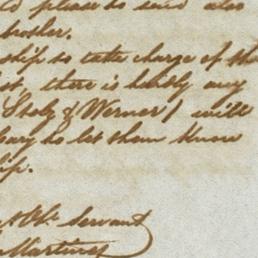 to please to send also
brother.
ship to take charge of the
there is hardly any
(Stolz & Werner) will
to let them know
ship.
Obt. Servant
Martines